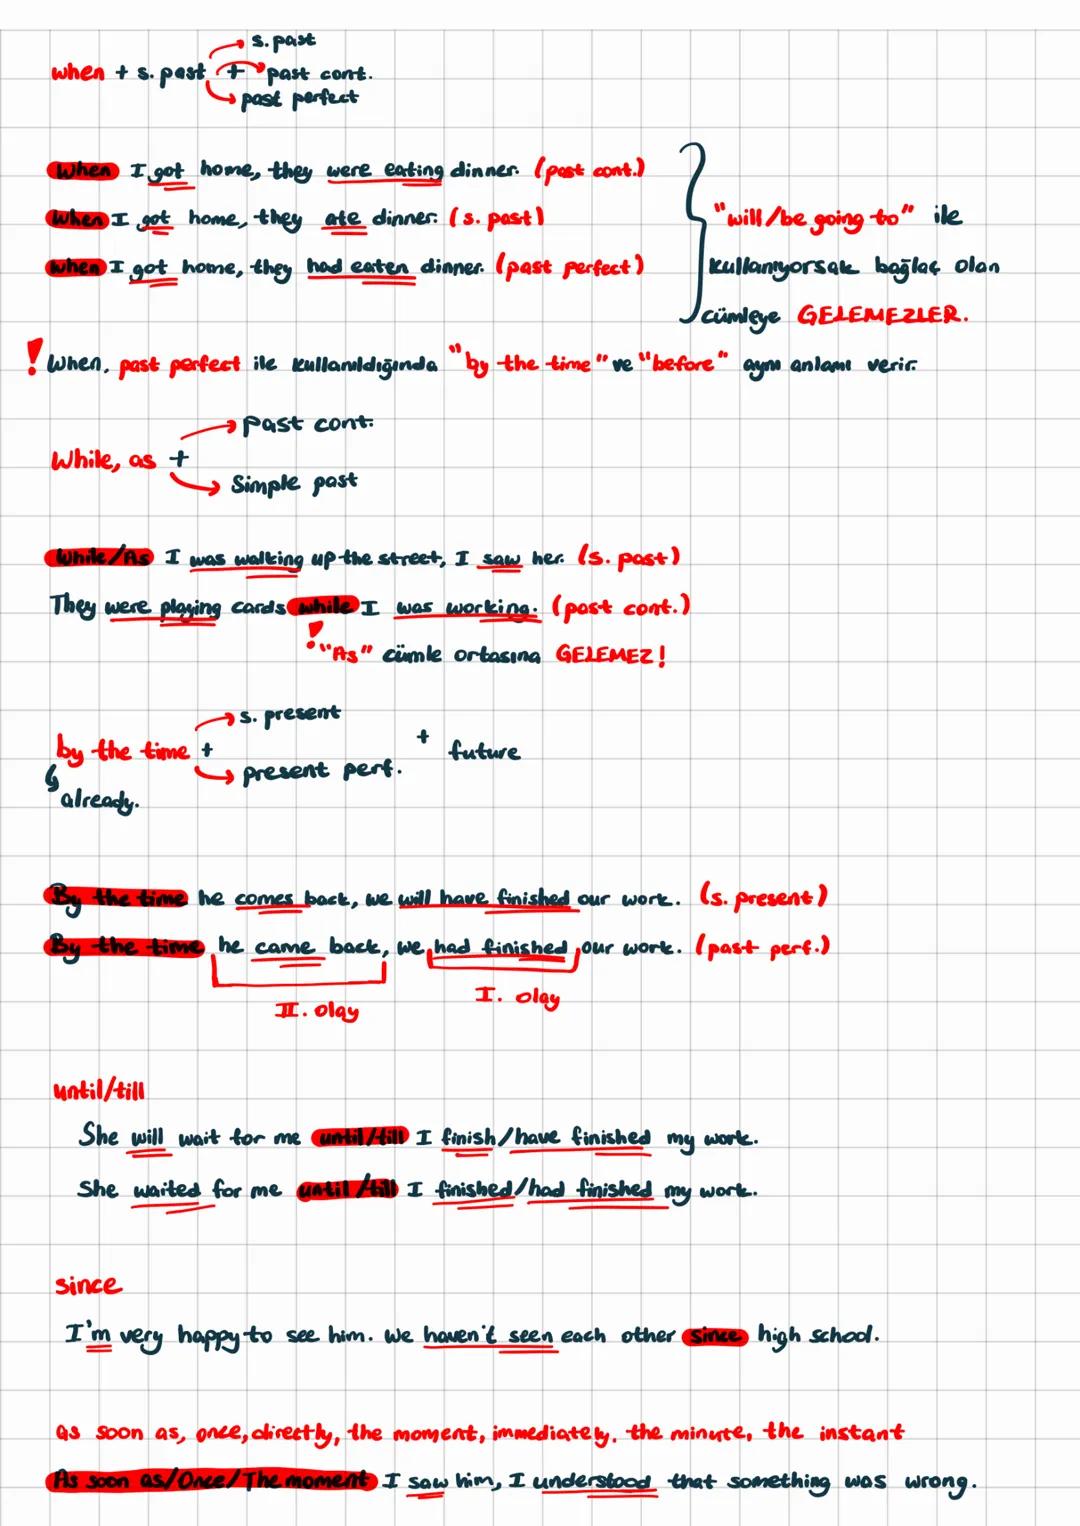 s. past
when + s. past + past cont.
past perfect
When I got home, they were eating dinner. (past cont.)
When I got home, they ate dinner. (s. past)
"will/be going to" ile
When I got home, they had eaten dinner. (past perfect)
kullanıyorsak bağlaç olan
cümleye GELEMEZLER.
! When, past perfect ile kullanıldığında "by the time" ve "before" aynı anlamı verir.
past cont.
While, as +
Simple past
While/As I was walking up the street, I saw her. (s. past)
They were playing cards while I was working. (past cont.)
! "As" cümle ortasına GELEMEZ!
s. present
by the time + + future
present perf.
already.
By the time he comes back, we will have finished our work. (s. present)
By the time he came back, we had finished our work. (past perf.)
II. olay I. olay
until/till
She will wait for me until/till I finish/have finished my work.
She waited for me until/till I finished/had finished my work.
since
I'm very happy to see him. We haven't seen each other since high school.
as soon as, once, directly, the moment, immediately, the minute, the instant
As soon as/Once/The moment I saw him, I understood that something was wrong.